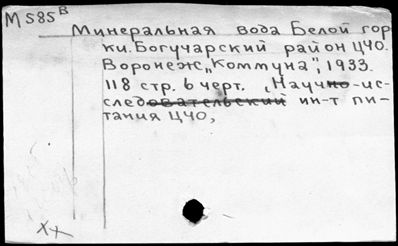 М585В
Минеральная вода Белой гор
ки. Богучарский район ЦЧО.
Воронеж, „Коммуна", 1933.
118 стр. 6 черт. „Научно-ис-
следовательский ин-т пи-
тания ЦЧО,
ХХ